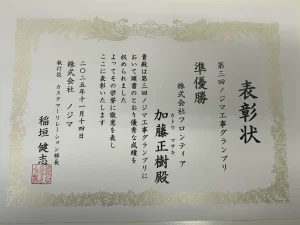 表彰状
第三回ノジマ工事グランプリ
準優勝
株式会社フロンティア
カトウ マサキ
加藤正樹殿
貴殿は第三回ノジマ工事グランプリに
おいて頭書のとおり優秀な成績を
収められました
よってその栄誉に敬意を表し
ここに表彰いたします
二〇二五年十一月十四日
株式会社 ノジマ
執行役 カスタマーリレーション部長
稲垣 健志